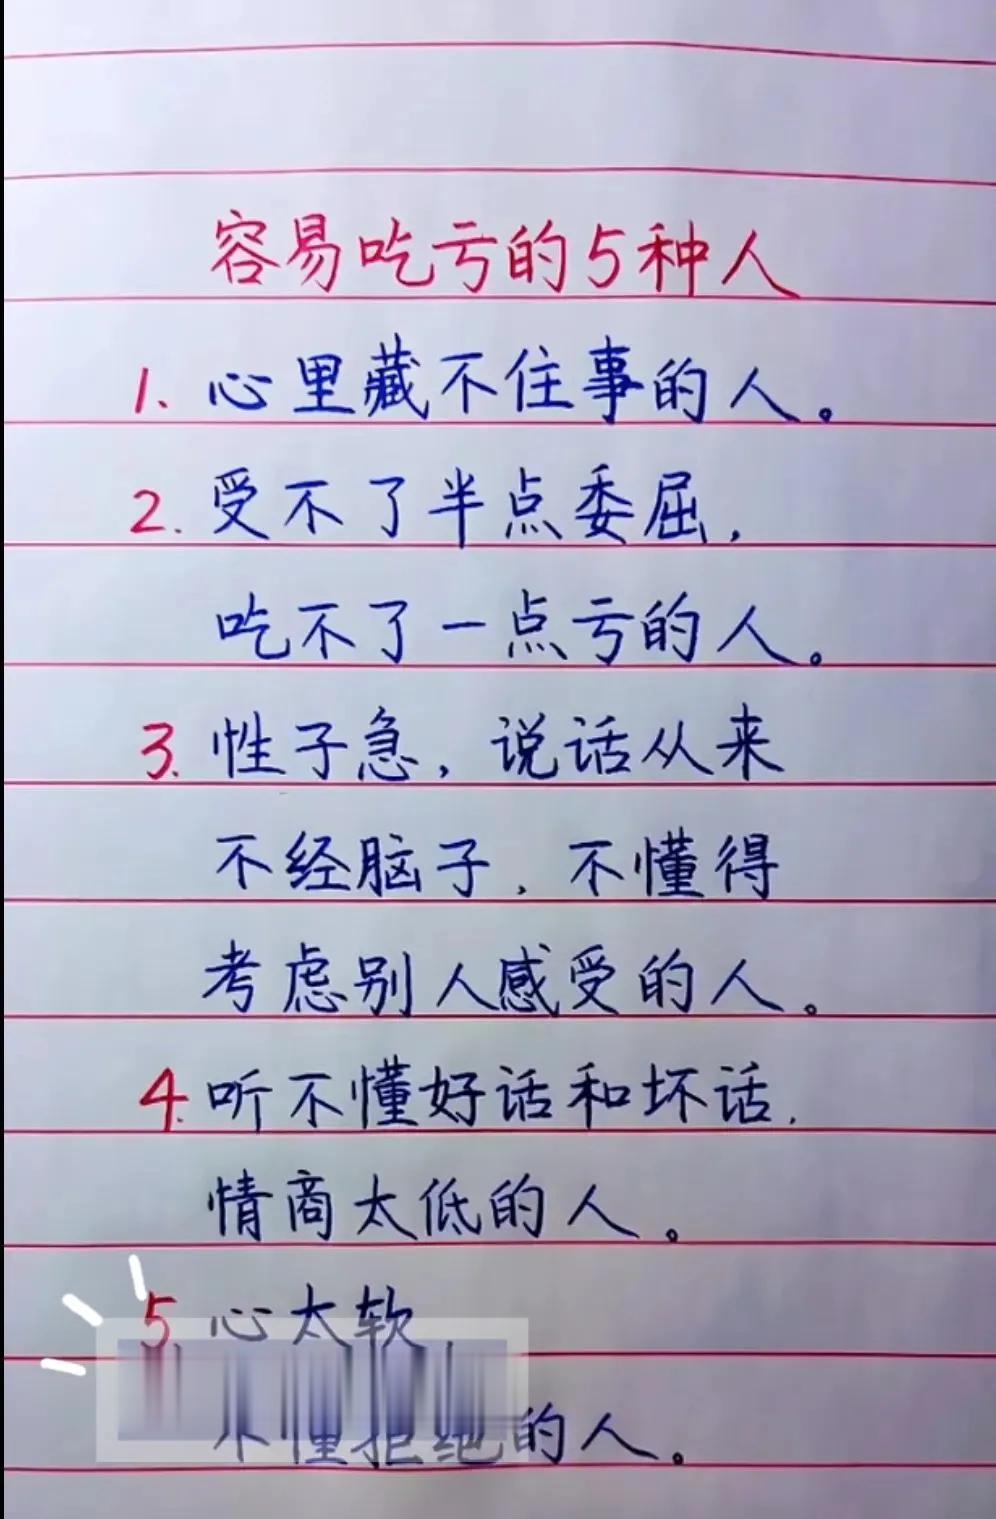 容易吃亏的5种人
1. 心里藏不住事的人。
2. 受不了半点委屈,
吃不了一点亏的人。
3. 性子急,说话从来
不经脑子,不懂得
考虑别人感受的人。
4. 听不懂好话和坏话,
情商太低的人。
5. 心太软,
不懂拒绝的人。